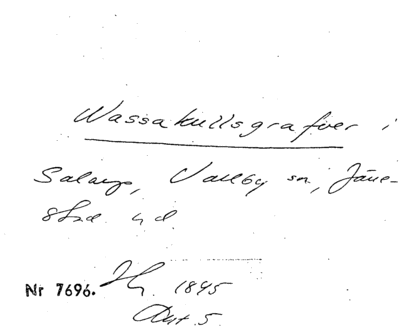 Wassakullsgrafver i
Salarp, Vallby sn, Järre-
stad hd.
Nr 7696. 1845
Art 5.